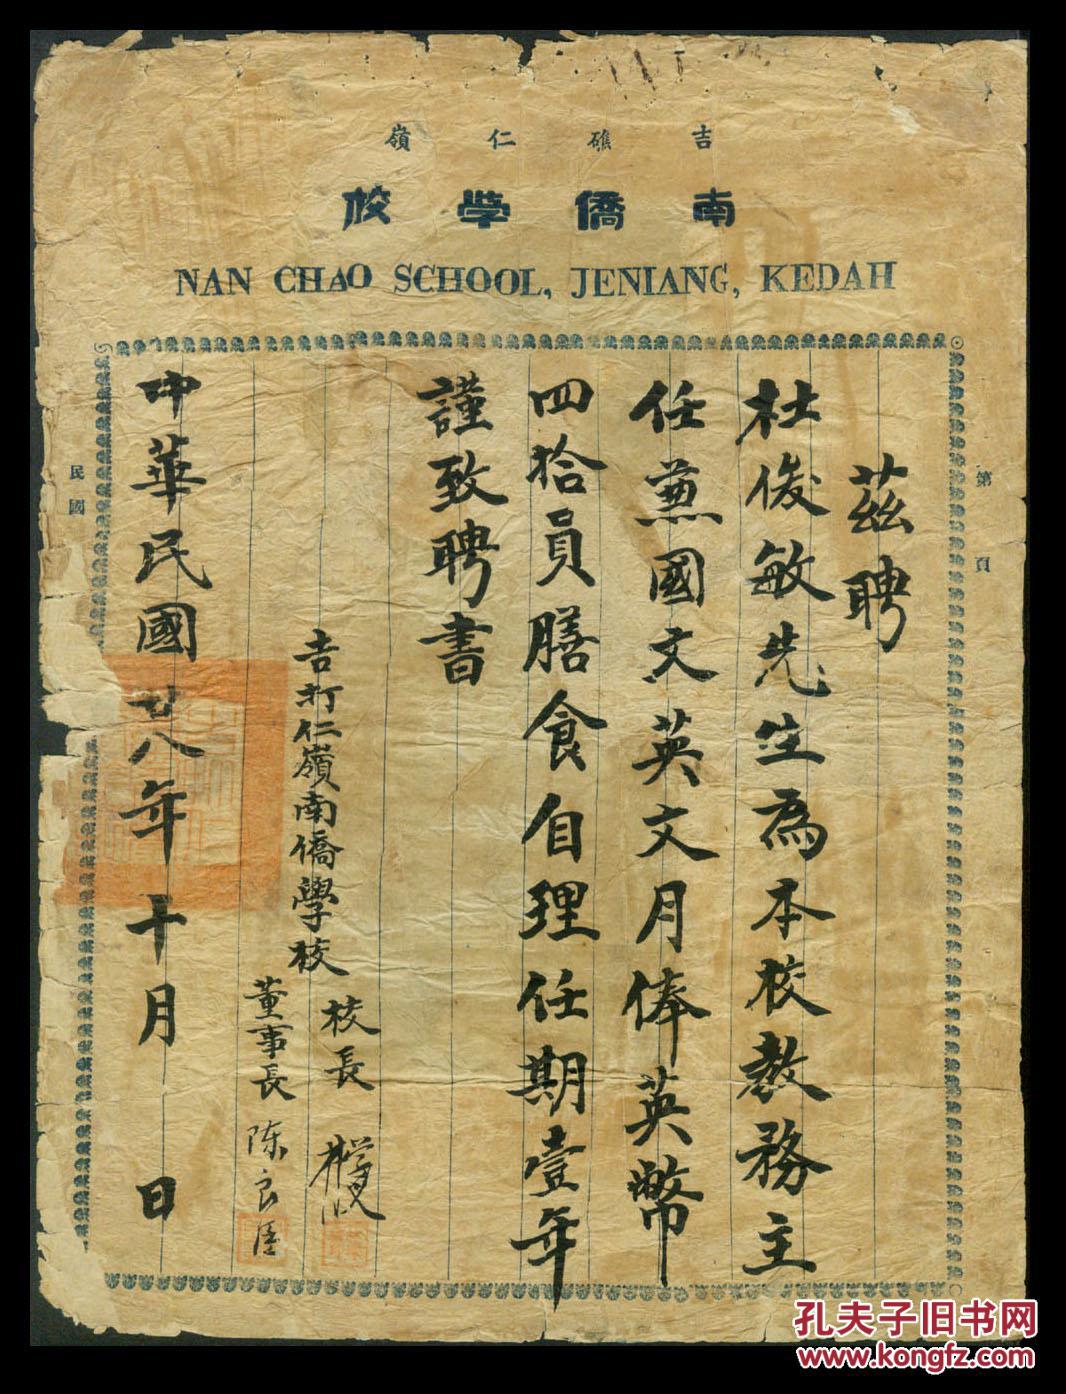 吉礁仁嶺
南僑學校
NAN CHAO SCHOOL, JENIANG, KEDAH
第 頁
茲聘
杜俊敏先生為本校教務主
任兼國文英文月俸英幣
四拾員膳食自理任期壹年
謹致聘書
吉打仁嶺南僑學校
校長
董事長 陈良
中華民國廿八年十月 日
民國
孔夫子旧书网
www.kongfz.com